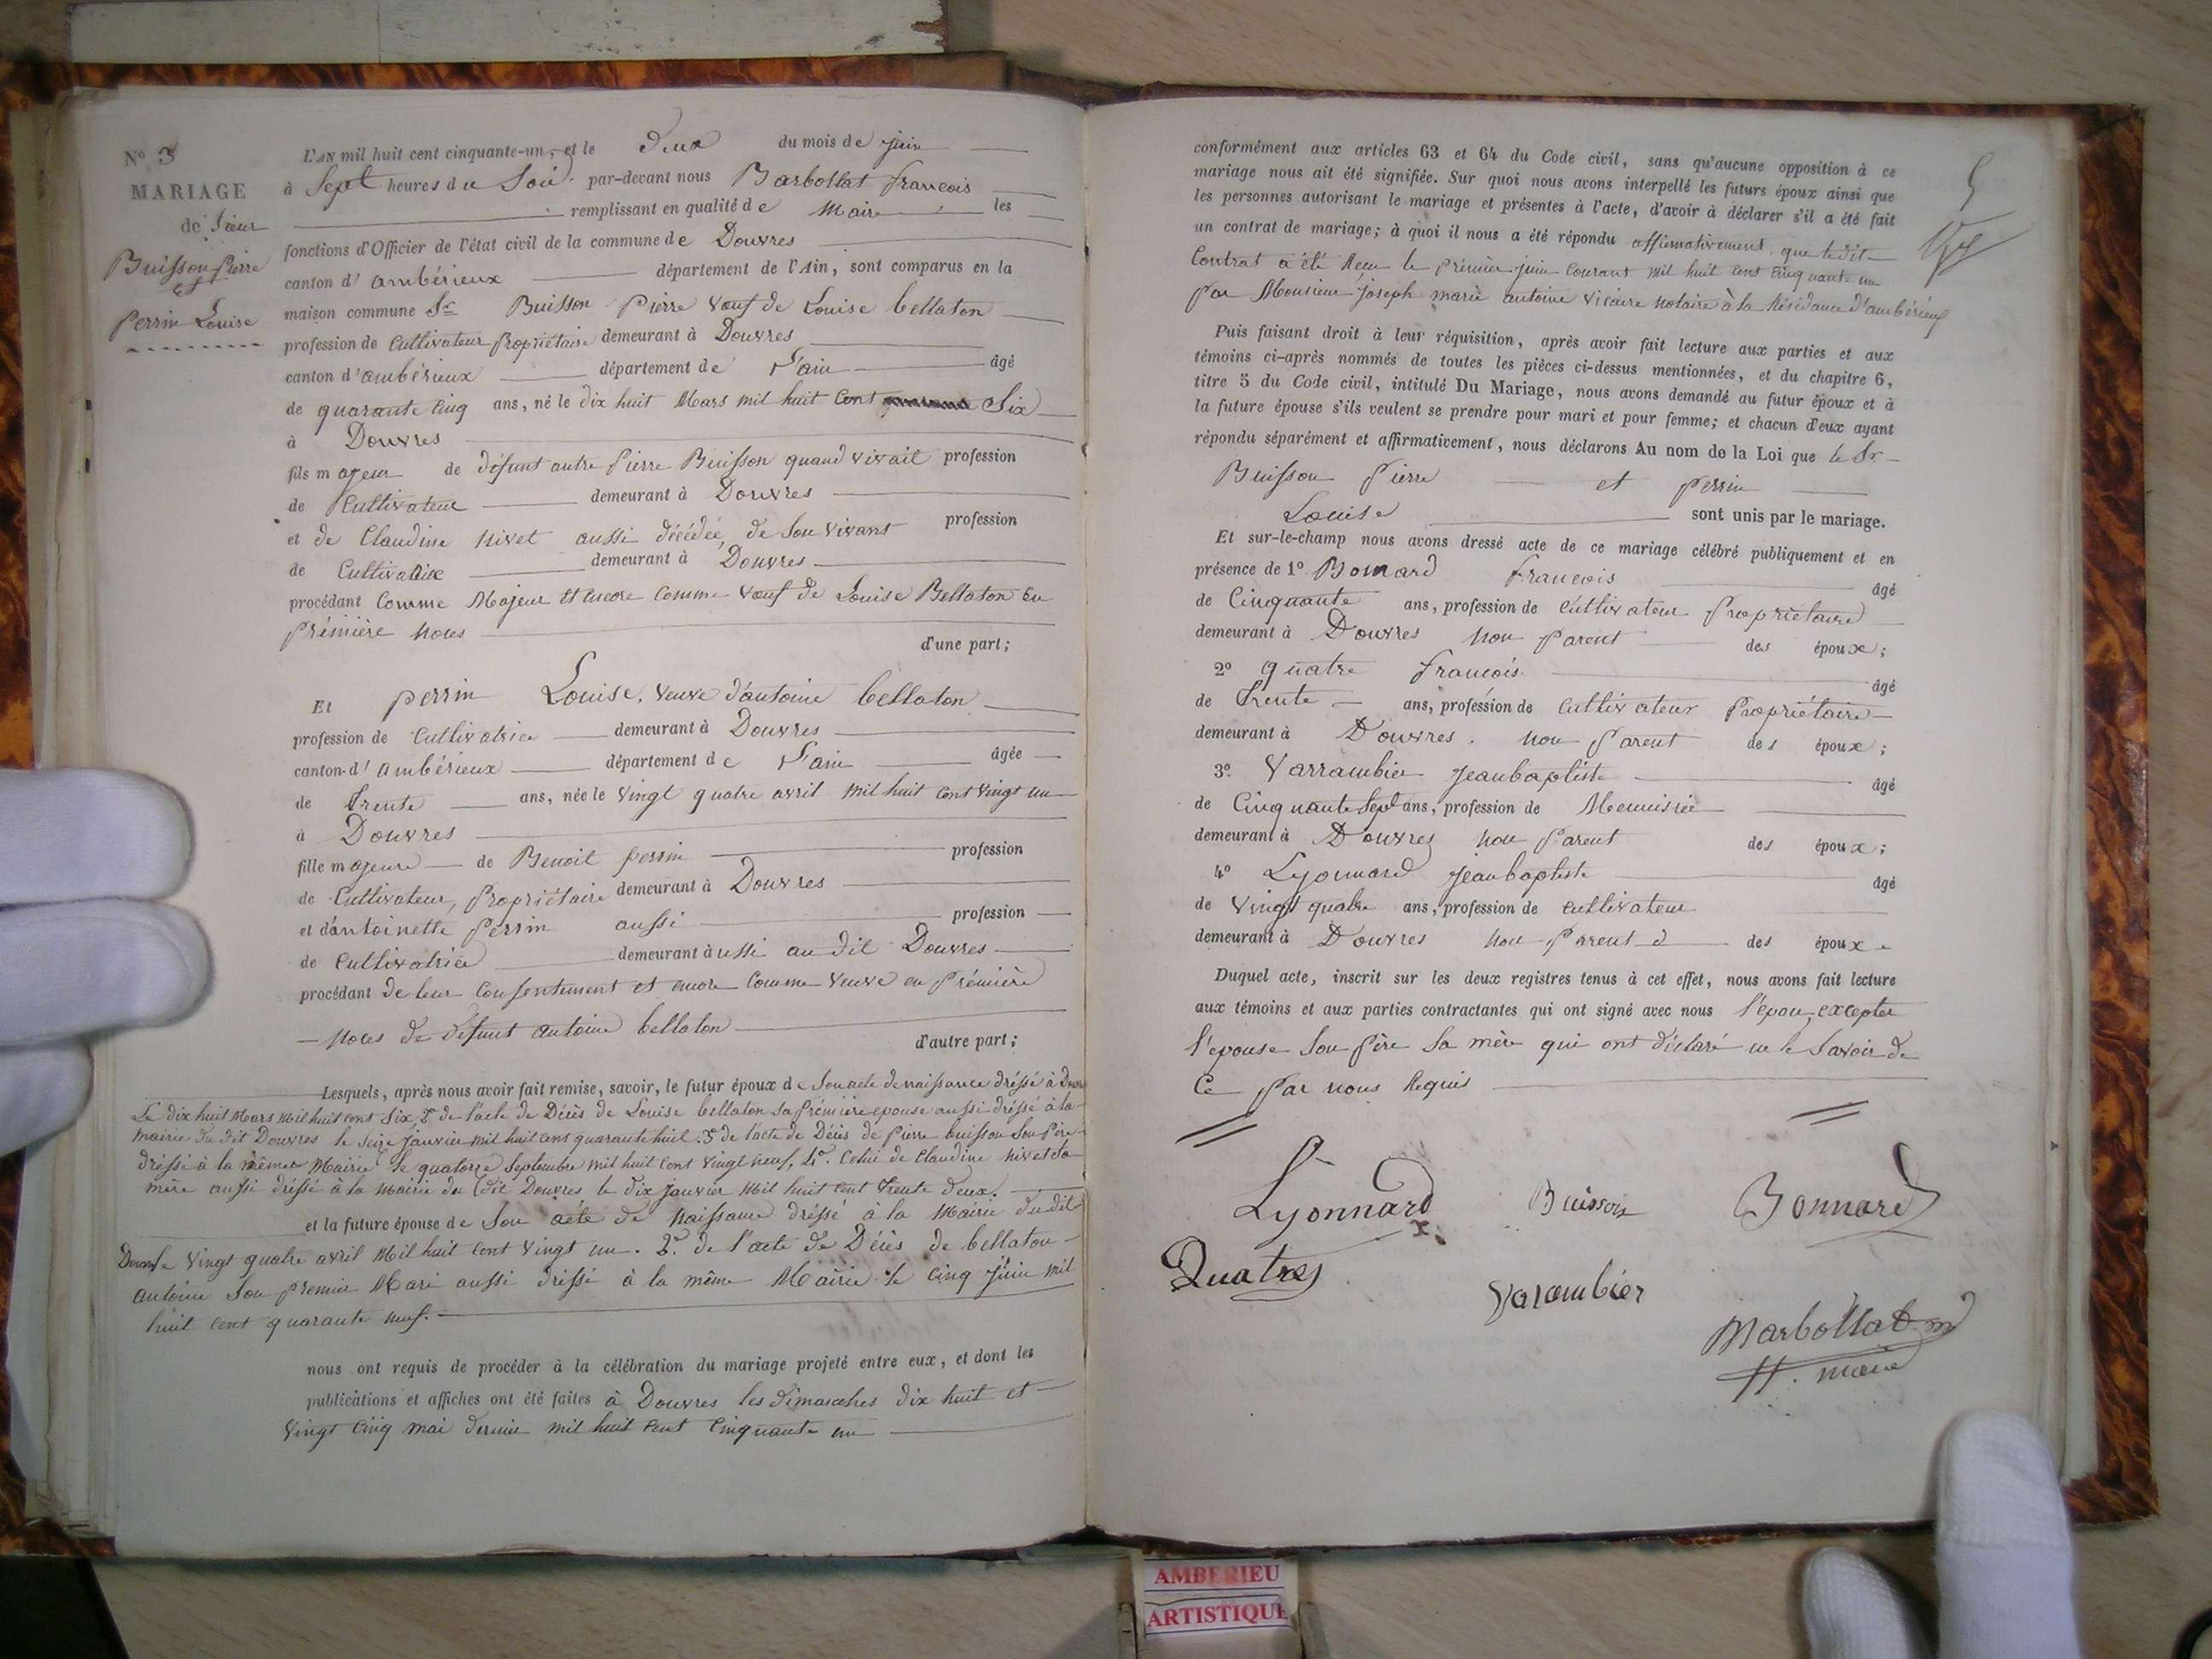 N° 3
MARIAGE
de Sieur
Buisson Pierre
et
Perrin Louise
L'AN mil huit cent cinquante-un, et le deux du mois de juin
à Sept heures du Soir par-devant nous Barbollat françois
remplissant en qualité de Maire les
fonctions d'Officier de l'état civil de la commune de Douvres
canton d'ambérieux département de l'Ain, sont comparus en la
maison commune Sr Buisson Pierre veuf de Louise bellaton
profession de Cultivateur Propriétaire demeurant à Douvres
canton d'ambérieux département de l'ain âgé
de quarante cinq ans, né le dix huit Mars mil huit Cent Six
à Douvres
fils majeur de défunt autre Pierre Buisson quand vivait profession
de Cultivateur demeurant à Douvres
et de Claudine Nivet aussi décédée, de Son vivant profession
de Cultivatrice demeurant à Douvres
procédant Comme Majeur et encore Comme veuf de Louise Bellaton en
première Noces d'une part;
Et perrin Louise, veuve d'antoine bellaton
profession de Cultivatrice demeurant à Douvres
canton d'ambérieux département de l'ain âgée
de trente ans, née le vingt quatre avril mil huit cent vingt un
à Douvres
fille majeure de Benoit perrin profession
de Cultivateur, Propriétaire demeurant à Douvres
et d'antoinette Perrin aussi profession
de Cultivatrice demeurant aussi au dit Douvres
procédant de leur Consentement et encore Comme veuve en Première
Noces de défunt antoine bellaton d'autre part;
Lesquels, après nous avoir fait remise, savoir, le futur époux de Son acte de naissance dréssé à
Le dix huit Mars mil huit cent Six, 2° de l'acte de Décès de Louise bellaton Sa première epouse aussi dréssé à la
mairie du dit Douvres le seize Janvier mil huit cent quarante huit. 3° de l'acte de Décès de pierre buisson Son Père
dréssé à la même Mairie le quatorze Septembre mil huit cent vingt neuf, 4°. Celui de Claudine nivet Sa
mère aussi dréssé à la Mairie du dit Douvres le dix janvier Mil huit cent trente deux.
et la future épouse de Son acte de Naissance dréssé à la Mairie du dit
Douvres le vingt quatre avril Mil huit cent vingt un. 2° de l'acte de Décès de bellaton
antoine Son premier Mari aussi dréssé à la même Mairie le cinq Juin mil
huit cent quarante neuf.
nous ont requis de procéder à la célébration du mariage projeté entre eux, et dont les
publications et affiches ont été faites à Douvres les dimanches dix huit et
vingt cinq mai dernier mil huit cent cinquante un
conformément aux articles 63 et 64 du Code civil, sans qu'aucune opposition à ce
mariage nous ait été signifiée. Sur quoi nous avons interpellé les futurs époux ainsi que
les personnes autorisant le mariage et présentes à l'acte, d'avoir à déclarer s'il a été fait
un contrat de mariage; à quoi il nous a été répondu affirmativement que ledit
Contrat a été Recu le prémier juin Courant mil huit cent cinquante un
par Monsieur Joseph marie antoine vicaire notaire à la Résidance d'ambérieux
Puis faisant droit à leur réquisition, après avoir fait lecture aux parties et aux
témoins ci-après nommés de toutes les pièces ci-dessus mentionnées, et du chapitre 6,
titre 5 du Code civil, intitulé Du Mariage, nous avons demandé au futur époux et à
la future épouse s'ils veulent se prendre pour mari et pour femme; et chacun d'eux ayant
répondu séparément et affirmativement, nous déclarons Au nom de la Loi que le Sr
Buisson Pierre et perrin
Louise sont unis par le mariage.
Et sur-le-champ nous avons dressé acte de ce mariage célébré publiquement et en
présence de 1° Bonnard françois âgé
de Cinquante ans, profession de Cultivateur Propriétaire
demeurant à Douvres non Parent des époux;
2° quatre françois âgé
de trente ans, profession de Cultivateur Propriétaire
demeurant à Douvres. non Parent des époux;
3° Varrambier Jeanbaptiste âgé
de Cinquante Sept ans, profession de Menuisier
demeurant à Douvres non Parent des époux;
4° Lyonnard Jeanbaptiste âgé
de vingt quatre ans, profession de Cultivateur
demeurant à Douvres non Parent des époux
Duquel acte, inscrit sur les deux registres tenus à cet effet, nous avons fait lecture
aux témoins et aux parties contractantes qui ont signé avec nous l'epoux, excepter
l'epouse Son père Sa mère qui ont déclaré ne le Savoir de
Ce par nous Requis
Lyonnard Buisson Bonnard
Quatre Varambier
Barbollat
maire
AMBERIEU
ARTISTIQUE